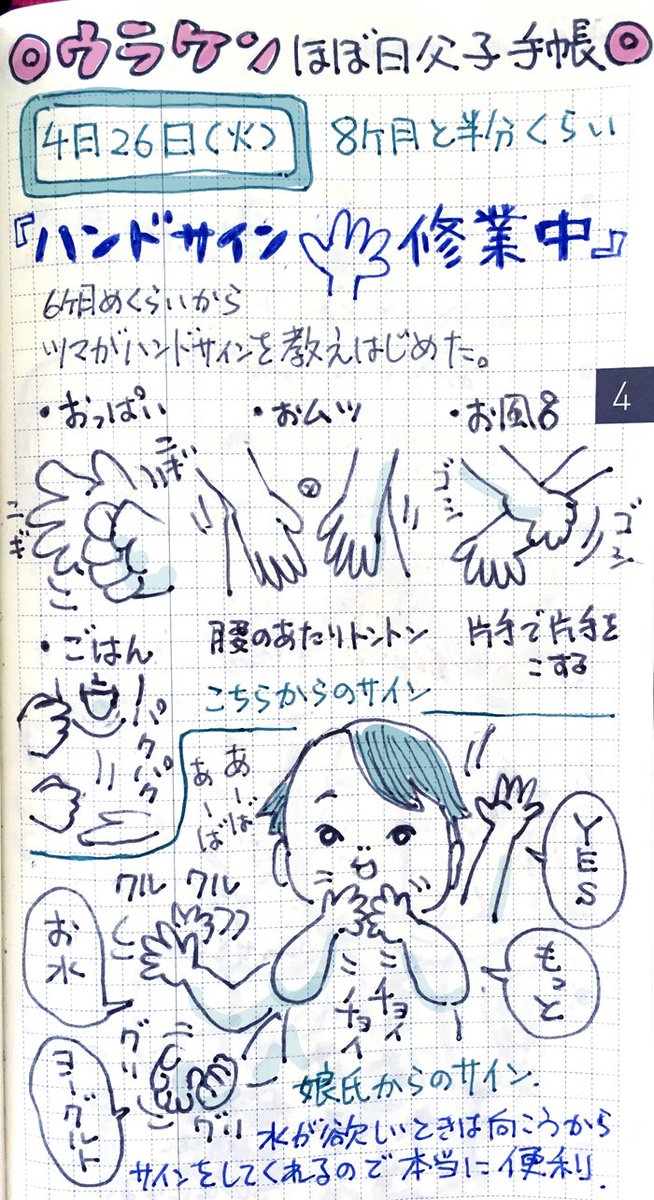 ウラケン ほぼ日父子手帳
4月26日(火) 8ヶ月と半分くらい
『ハンドサイン修業中』
6ヶ月めくらいから
ツマがハンドサインを教えはじめた。
4
・おっぱい
にぎ
にぎ
・おムツ
腰のあたりトントン
・お風呂
ゴシ
ゴシ
片手で片手を
こする
・ごはん
パクパク
こちらからのサイン
あーば
あーば
YES
クルクル
お水
もっと
チョイ
チョイ
グリ
グリ
ヨーグルト
娘氏からのサイン.
水が欲しいときは向こうから
サインをしてくれるので本当に便利.